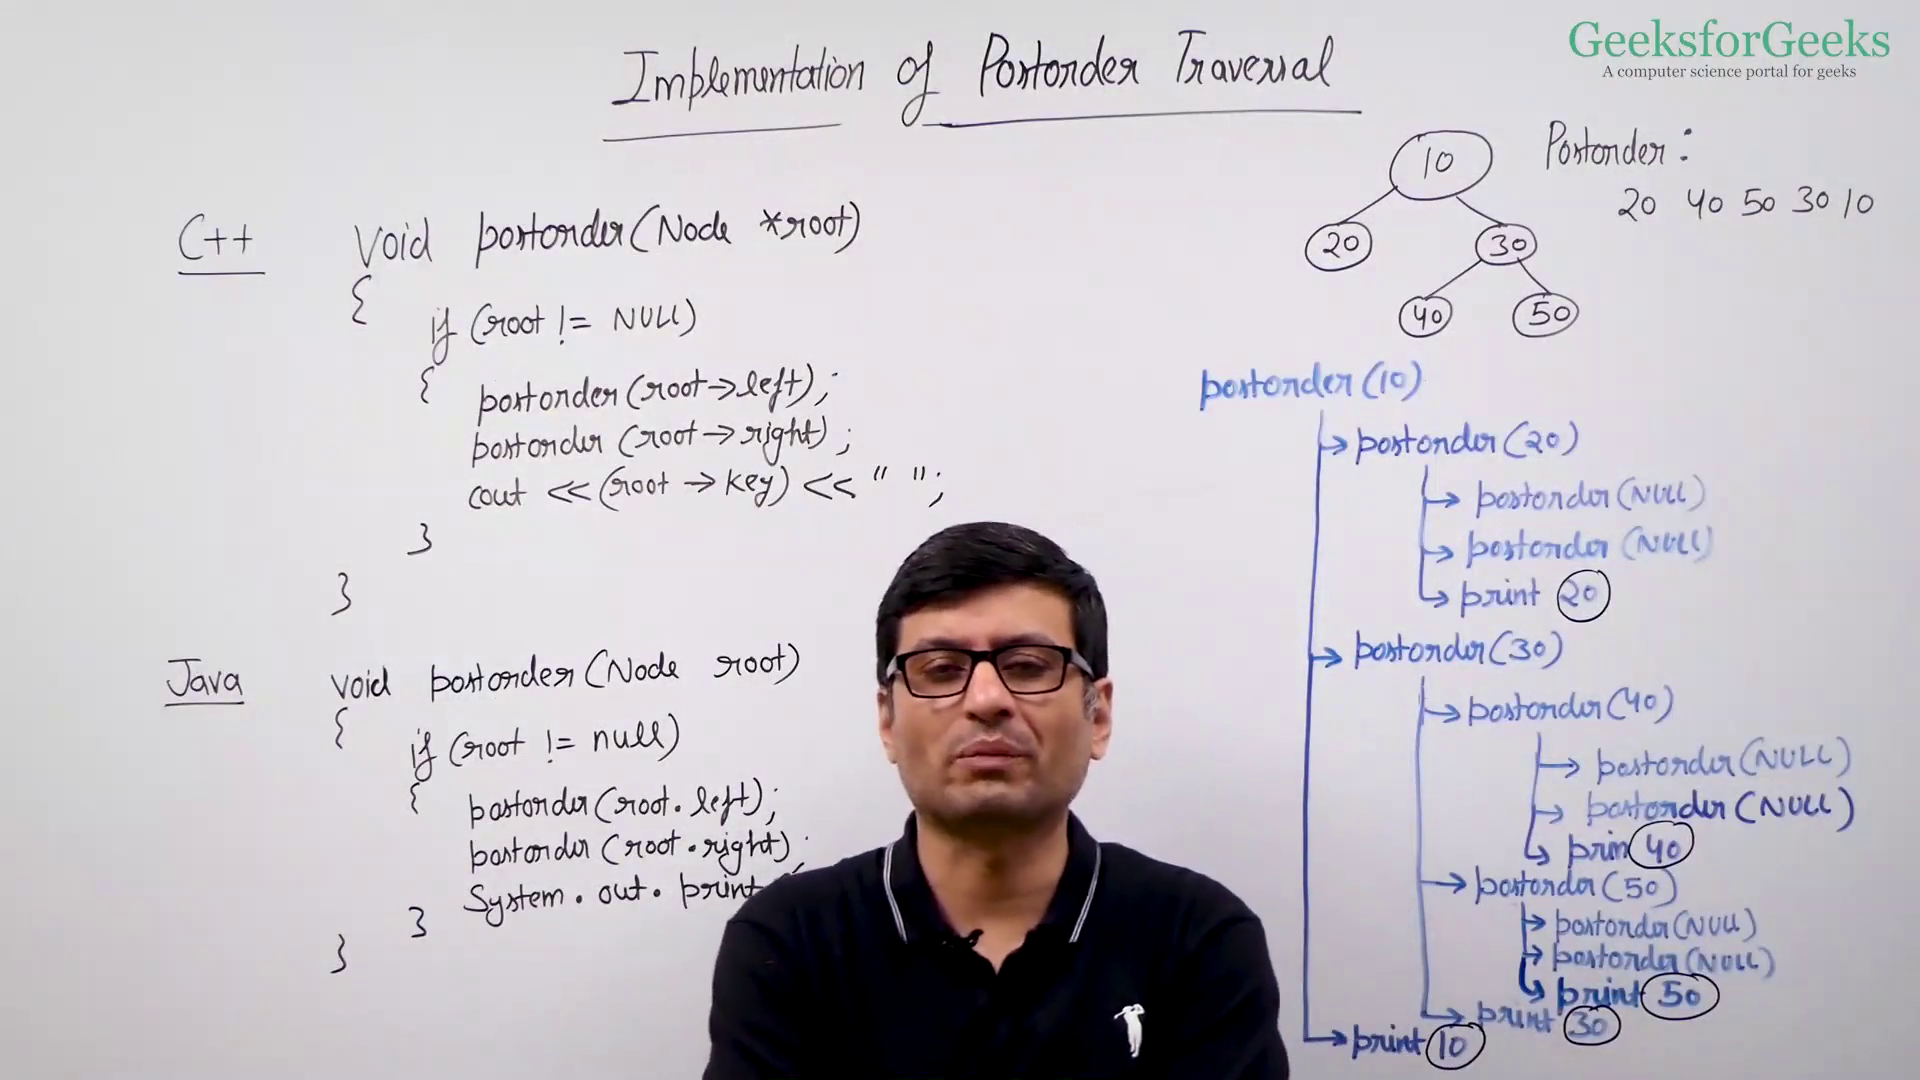 GeeksforGeeks
A computer science portal for geeks
Implementation of Postorder Traversal
C++
void postorder(Node *root)
{
if (root != NULL)
{ postorder(root->left);
postorder (root->right);
cout << (root -> key) << " ";
}
}
Java
void postorder(Node root)
{
if (root != null)
{ postorder(root.left);
postorder(root.right);
System.out.print
}
}
10
20
30
40
50
Postorder:
20 40 50 30 10
postorder(10)
→ postorder(20)
→ postorder(NULL)
→ postorder (NULL)
→ print 20
→ postorder(30)
→ postorder(40)
→ postorder(NULL)
→ postorder(NULL)
→ prin 40
→ postorder(50)
→ postorder(NULL)
→ postorder(NULL)
→ print 50
→ print 30
→ print 10